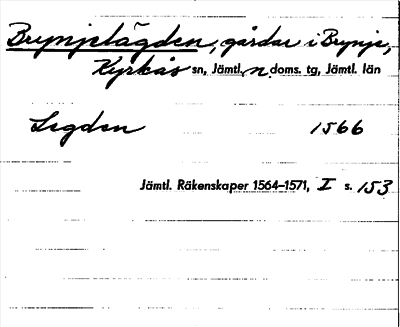 Brynjelägden, gårdar i Brynje,
Kyrkås sn, Jämtl. n. doms. tg, Jämtl. län
Legden 1566
Jämtl. Räkenskaper 1564–1571, I s. 153